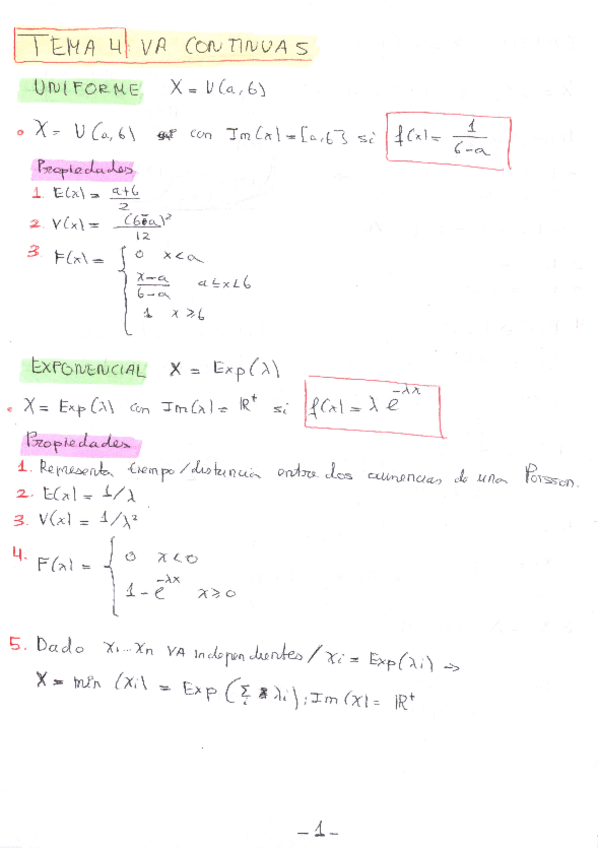 TEMA 4 VA CONTINUAS
UNIFORME X = U(a,b)
• X = U(a,b) con Im(x) = [a,b] si f(x) = 1/(b-a)
Propiedades
1. E(x) = (a+b)/2
2. V(x) = (b-a)²/12
3 F(x) = { 0 x<a
(x-a)/(b-a) a≤x<b
1 x≥b
EXPONENCIAL X = Exp(λ)
• X = Exp(λ) con Im(x) = ℝ⁺ si f(x) = λ e^(-λx)
Propiedades
1. Representa tiempo/distancia entre dos ocurrencias de una Poisson.
2. E(x) = 1/λ
3. V(x) = 1/λ²
4. F(x) = { 0 x<0
1 - e^(-λx) x≥0
5. Dado x₁...xn VA independientes / xi = Exp(λi) →
X = min (xi) = Exp (Σi λi); Im(X) = ℝ⁺
- 1 -